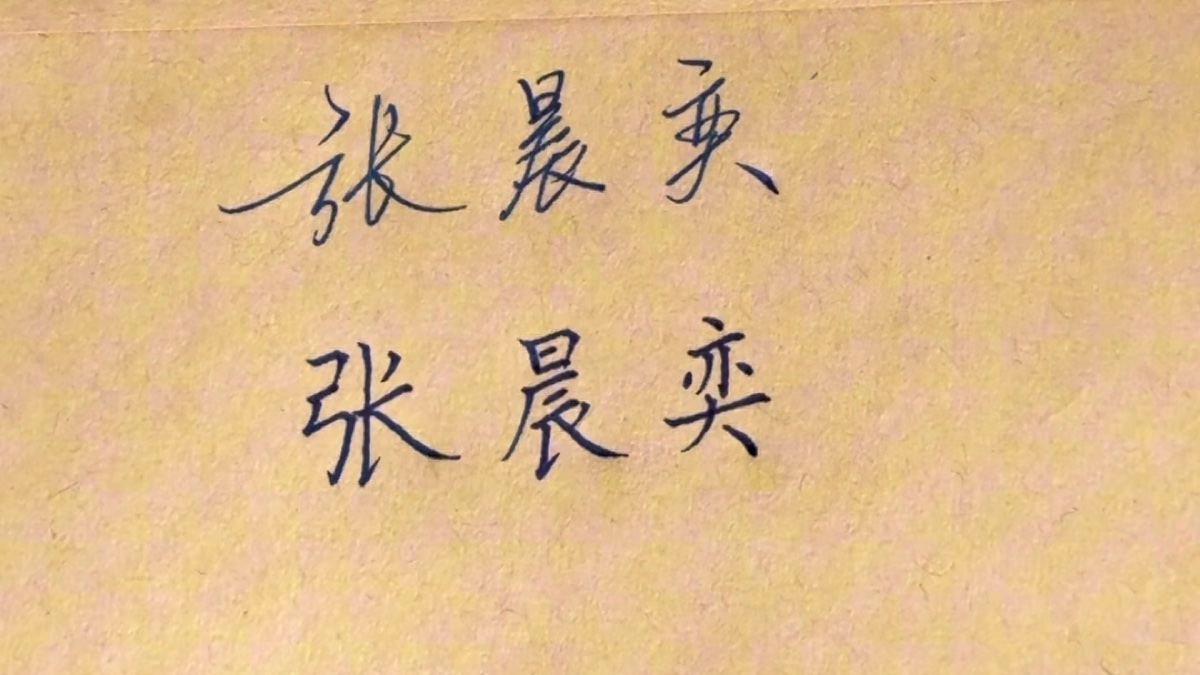 张晨奕
张晨奕